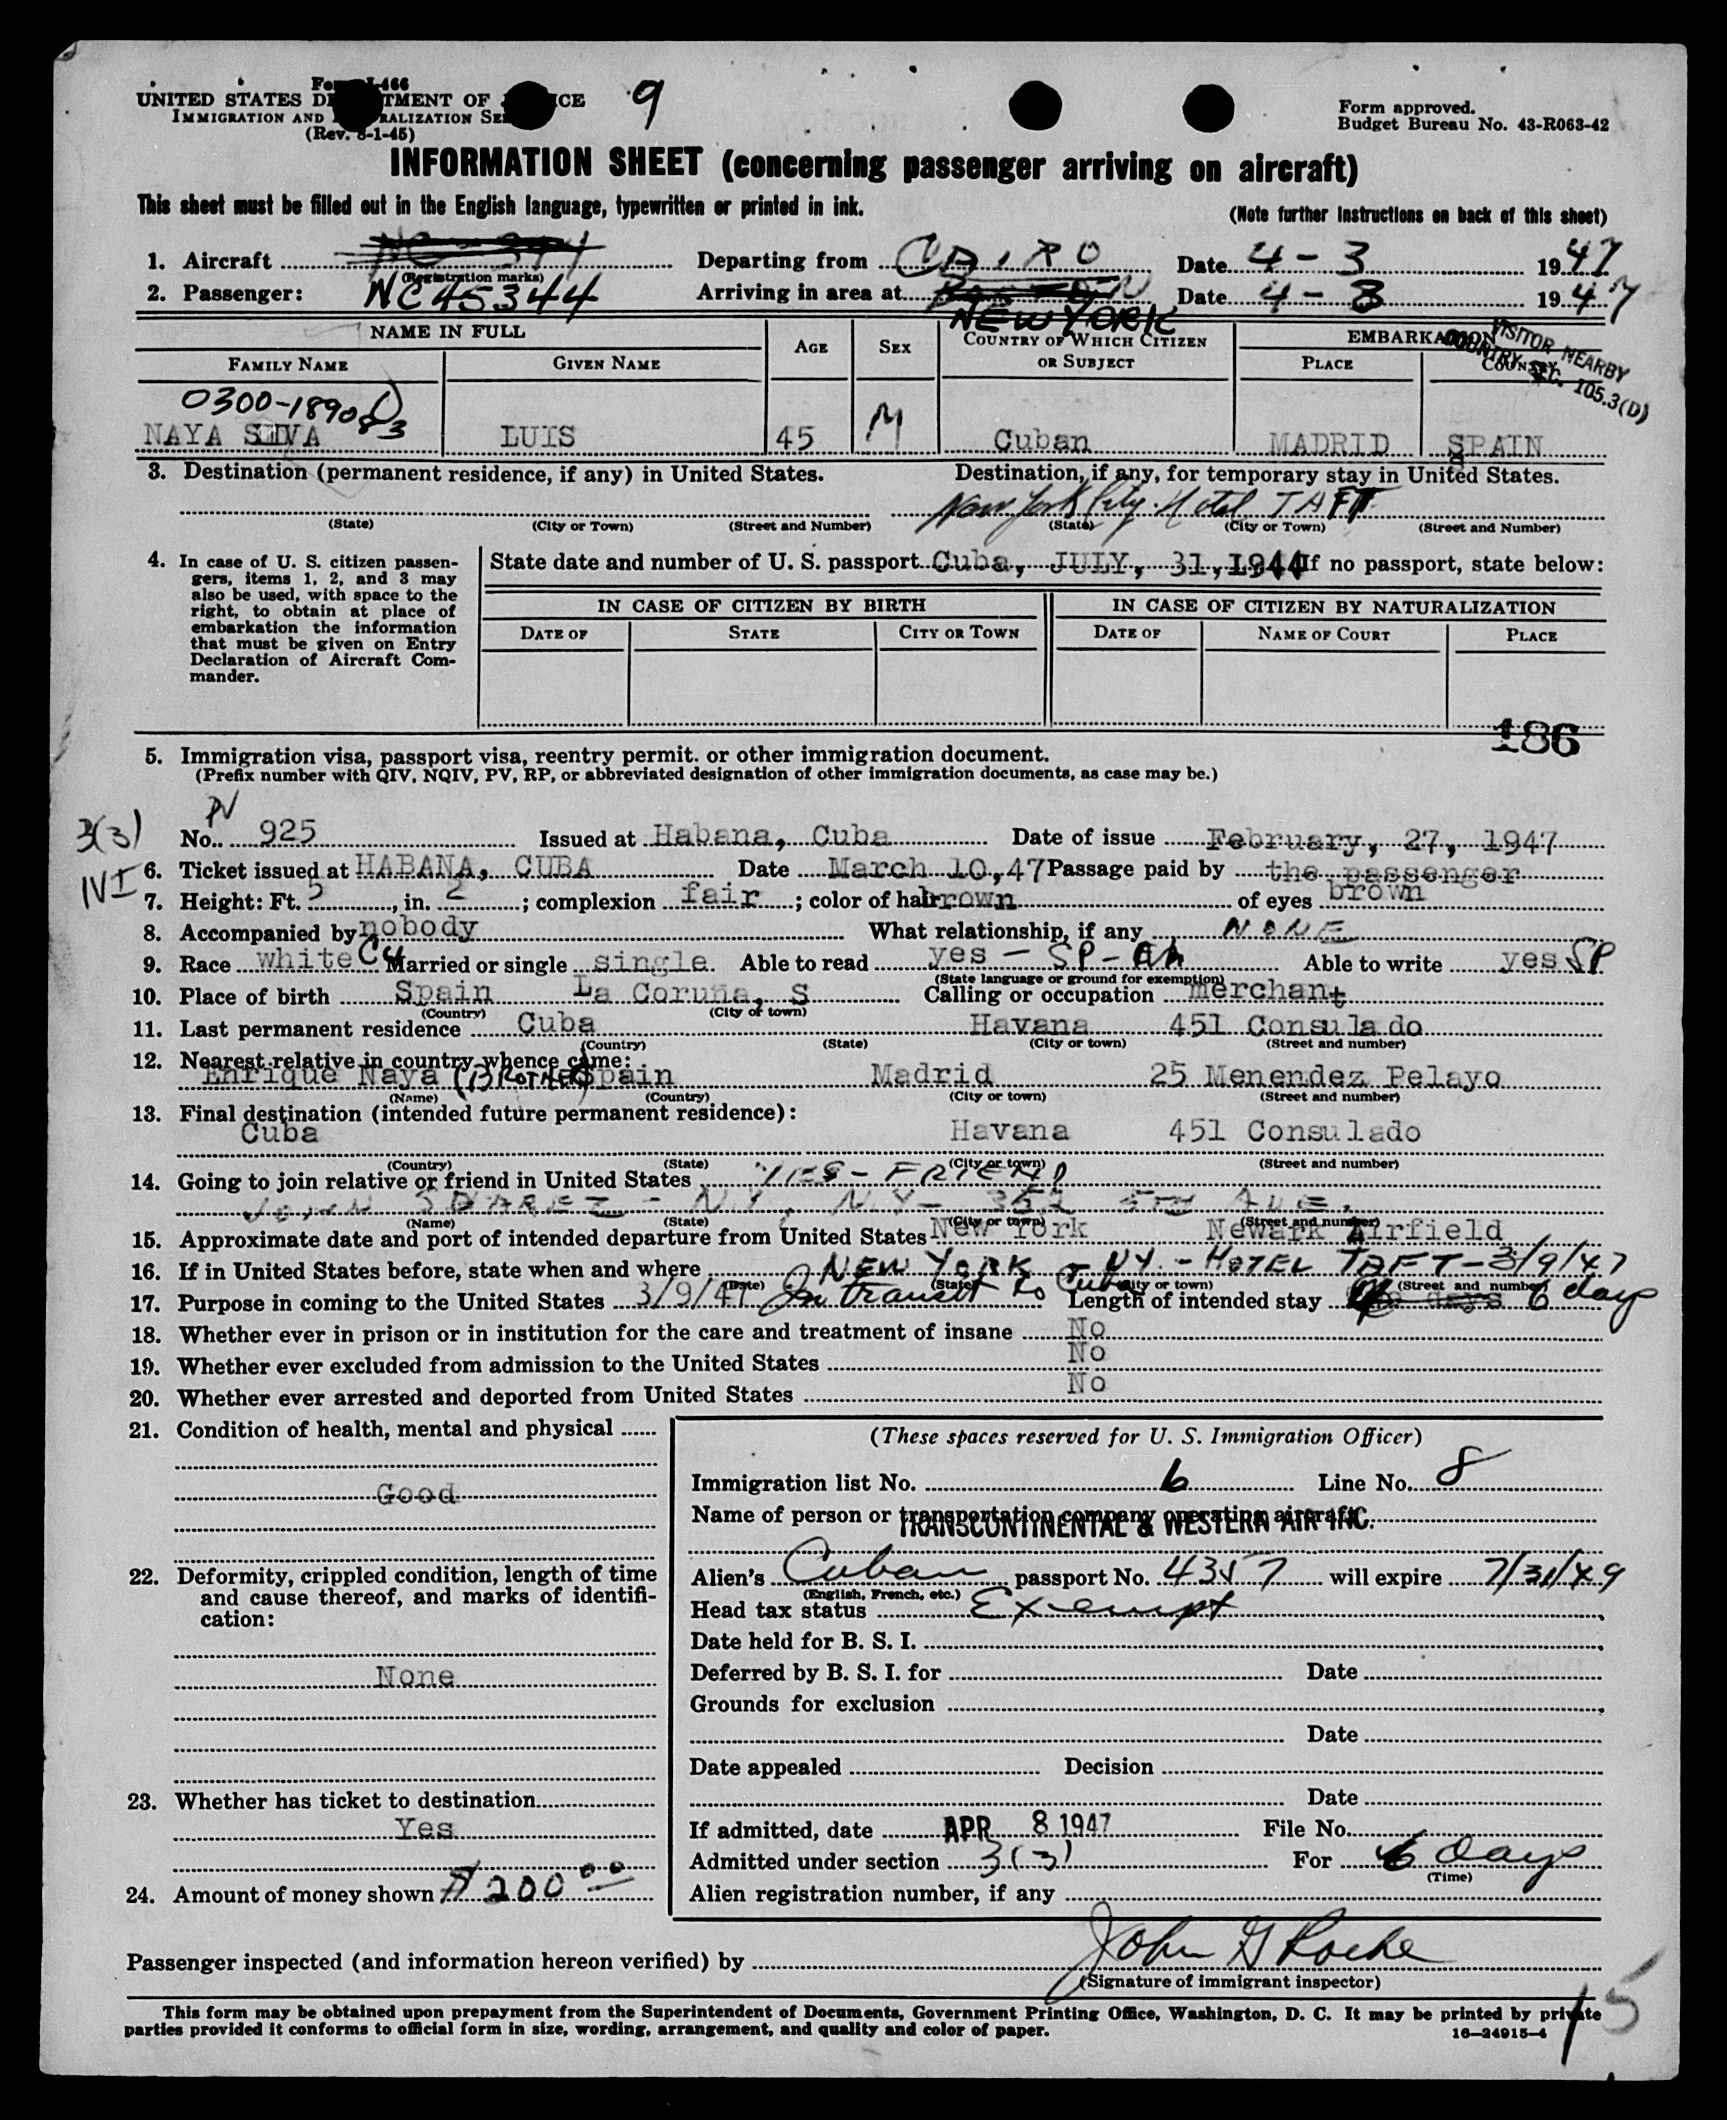 Form I-466
UNITED STATES DEPARTMENT OF JUSTICE
IMMIGRATION AND NATURALIZATION SERVICE
(Rev. 8-1-45)
9
Form approved.
Budget Bureau No. 43-R063-42
INFORMATION SHEET (concerning passenger arriving on aircraft)
This sheet must be filled out in the English language, typewritten or printed in ink.
(Note further instructions on back of this sheet)
1. Aircraft Departing from CAIRO Date 4-3 1947
(Registration marks)
2. Passenger: NC45344 Arriving in area at Date 4-8 1947
NEW YORK
NAME IN FULL AGE SEX COUNTRY OF WHICH CITIZEN OR SUBJECT EMBARKATION
FAMILY NAME GIVEN NAME PLACE COUNTRY
VISITOR NEARBY
COUNTRY SEC. 105.3(D)
0300-189083
NAYA SILVA LUIS 45 M Cuban MADRID SPAIN
3. Destination (permanent residence, if any) in United States. Destination, if any, for temporary stay in United States.
New York City. Hotel TAFT
(State) (City or Town) (Street and Number) (State) (City or Town) (Street and Number)
4. In case of U. S. citizen passengers, items 1, 2, and 3 may also be used, with space to the right, to obtain at place of embarkation the information that must be given on Entry Declaration of Aircraft Commander.
State date and number of U. S. passport Cuba, JULY, 31, 1944 If no passport, state below:
IN CASE OF CITIZEN BY BIRTH IN CASE OF CITIZEN BY NATURALIZATION
DATE OF STATE CITY OR TOWN DATE OF NAME OF COURT PLACE
186
5. Immigration visa, passport visa, reentry permit. or other immigration document.
(Prefix number with QIV, NQIV, PV, RP, or abbreviated designation of other immigration documents, as case may be.)
PV
3(3)
No. 925 Issued at Habana, Cuba Date of issue February, 27, 1947
IVI
6. Ticket issued at HABANA, CUBA Date March 10, 47 Passage paid by the passenger
7. Height: Ft. 5, in. 2; complexion fair; color of hair brown of eyes brown
8. Accompanied by nobody What relationship, if any NONE
9. Race white Cu Married or single single Able to read yes - SP - Able to write yes SP
(State language or ground for exemption)
10. Place of birth Spain La Coruña, S Calling or occupation merchant
(Country) (City or town)
11. Last permanent residence Cuba Havana 451 Consulado
(Country) (State) (City or town) (Street and number)
12. Nearest relative in country whence came:
Enrique Naya (BROTHER) Spain Madrid 25 Menendez Pelayo
(Name) (Country) (City or town) (Street and number)
13. Final destination (intended future permanent residence):
Cuba Havana 451 Consulado
(Country) (State) (City or town) (Street and number)
14. Going to join relative or friend in United States YES - FRIEND
JOHN SUAREZ - N.Y., N.Y. - 352 5TH AVE.
(Name) (State) (City or town) (Street and number)
15. Approximate date and port of intended departure from United States New York Newark Airfield
16. If in United States before, state when and where NEW YORK - NY. - HOTEL TAFT - 3/9/47
(Date) (State) (City or town) (Street and number)
17. Purpose in coming to the United States 3/9/47 In transit to Cuba Length of intended stay 6 days
18. Whether ever in prison or in institution for the care and treatment of insane No
19. Whether ever excluded from admission to the United States No
20. Whether ever arrested and deported from United States No
21. Condition of health, mental and physical
Good
22. Deformity, crippled condition, length of time and cause thereof, and marks of identification:
None
23. Whether has ticket to destination
Yes
24. Amount of money shown $200 00
(These spaces reserved for U. S. Immigration Officer)
Immigration list No. 6 Line No. 8
Name of person or transportation company operating aircraft
TRANSCONTINENTAL & WESTERN AIR INC.
Alien's Cuban passport No. 4357 will expire 7/31/49
(English, French, etc.)
Head tax status Exempt
Date held for B. S. I.
Deferred by B. S. I. for Date
Grounds for exclusion
Date
Date appealed Decision
Date
If admitted, date APR 8 1947 File No.
Admitted under section 3(3) For 6 days
(Time)
Alien registration number, if any
Passenger inspected (and information hereon verified) by John G Roche
(Signature of immigrant inspector)
This form may be obtained upon prepayment from the Superintendent of Documents, Government Printing Office, Washington, D. C. It may be printed by private
parties provided it conforms to official form in size, wording, arrangement, and quality and color of paper.
16-24915-4
15